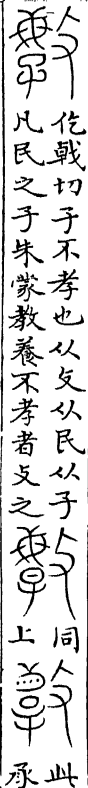 仡戟切子不孝也从攴从民从子
凡民之子朱蒙教養不孝者攴之
同
上
此
承